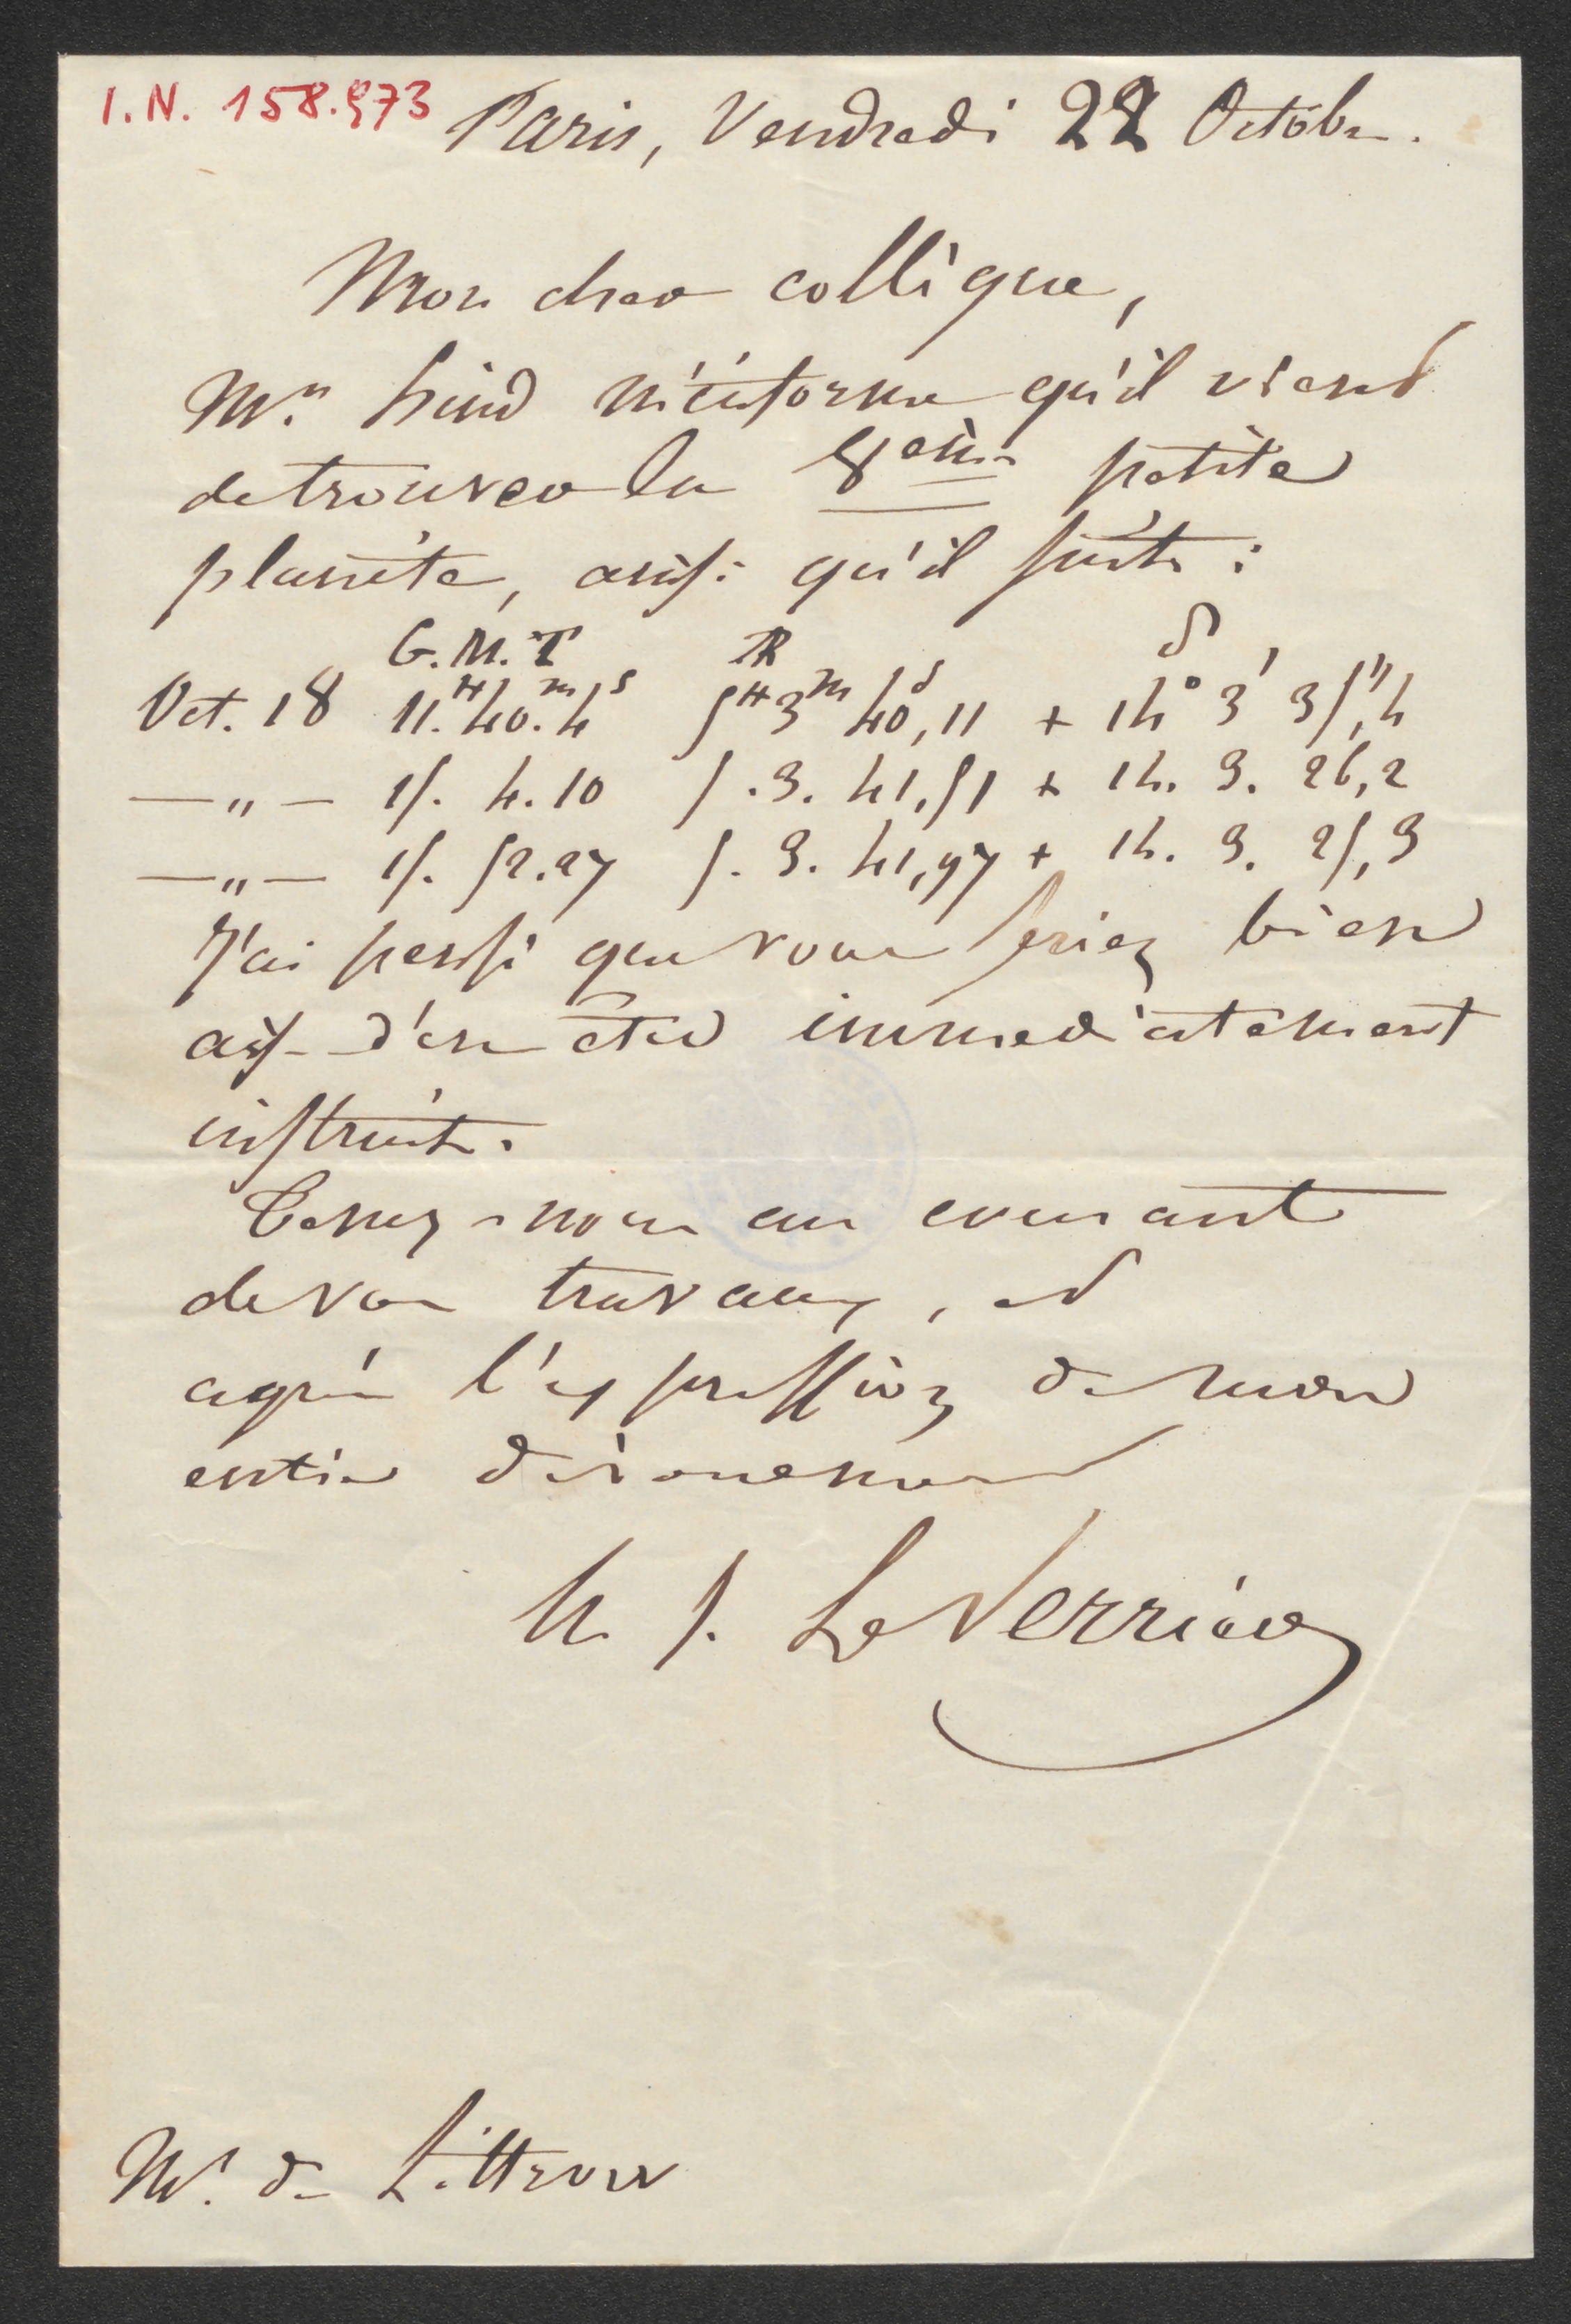 I.N. 158.973
Paris, Vendredi 22 Octobre.
Mon cher collègue,
Mr. Hind m'informe qu'il vient
de trouver la 8ème petite
planète, ainsi qu'il suit :
G.M.T AR δ
Oct. 18 11.H40.m4s 5H3m40s,11 + 14° 3' 35",4
—"— 15. 4.10 5.3.41,51 + 14. 3. 26,2
—"— 15. 52.27 5.3.41,97 + 14. 3. 25,3
J'ai pensé que vous seriez bien
aise d'en être immediatement
instruit.
Tenez-nous au courant
de vos travaux, et
agréez l'expression de mon
entier dévouement
U. J. LeVerrier
Mr. de Littrow